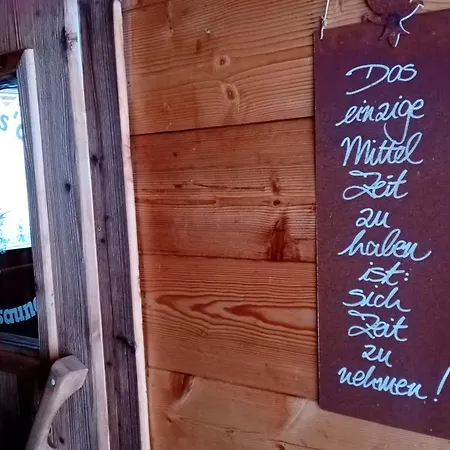 Das
einzige
Mittel
Zeit
zu
haben
ist:
sich
Zeit
zu
nehmen!
sauna